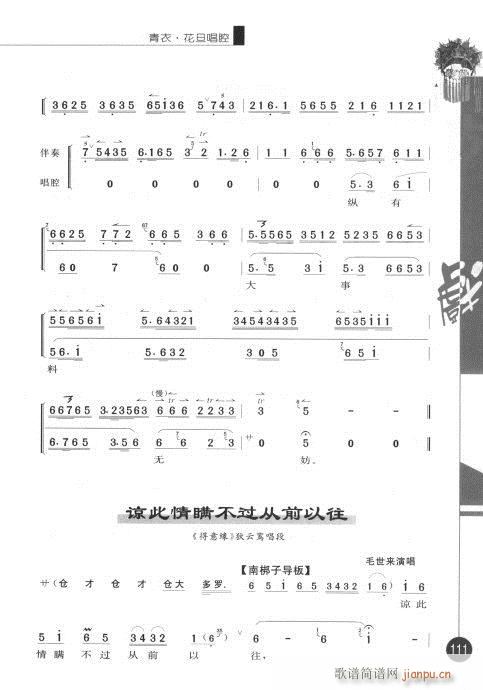 青衣·花旦唱腔
3 6 2 5 3 6 3 5 6 5 i 3 6 5 7 4 3 2 1 6 · 1 5 6 5 5 2 1 6 1 1 2 1
伴奏 7 5 4 3 5 6 · 1 6 5 3 2 1 · 1 2 6 1 1 6 6 5 5 3 5 6 i
唱腔 0 0 0 0 0 0 0 5 · 3 6 i
纵 有
6 2 2 5 7 7 2 6 6 5 3 6 6 5 · 5 5 6 5 3 5 i 3 5 · 3 5 6 6 5 3
6 0 7 6 0 6 5 · 5 3 i 5 · 3 6 6 5 3
大 事
5 5 6 5 6 i 5 · 6 4 3 2 1 3 4 5 4 3 4 3 5 6 5 3 5 i i i
5 6 · i 5 · 6 3 2 3 0 5 6 5 i
料
(慢)
6 6 7 6 5 3 · 2 3 5 6 3 6 6 6 2 2 3 3 3 5 - -
6 · 7 6 5 3 · 5 6 6 2 3 サ 0 5 0 0
无 妨。
谅此情瞒不过从前以往
《得意缘》狄云鸾唱段
毛世来演唱
【南梆子导板】
サ ( 仓 才 仓 才 仓大 多罗. 6 5 i 6 5 3 4 3 2 1 6 ) i 6
谅此
5 i 6 5 3 3 4 3 2 1 ( 6 ) 6 i - - -
情 瞒 不 过 从 前 以 往,
111
歌谱简谱网
jianpu.cn